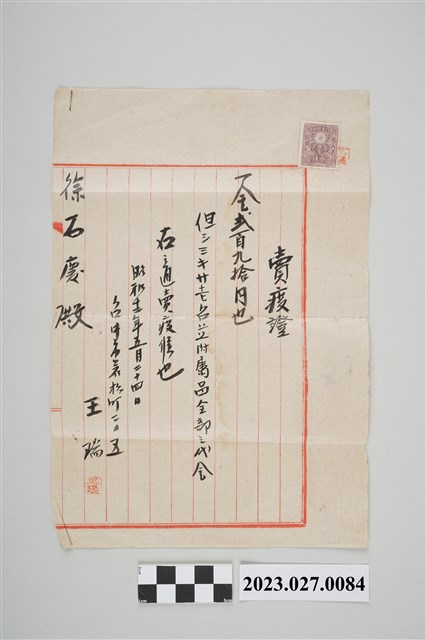 賣渡證
一金貳百九拾円也
但シミキ廿七台並附属品全部之代金
右之通賣渡候也
昭和 年五月二十四日
台中市若松町二ノ五
王瑞
徐石慶殿
2023.027.0084